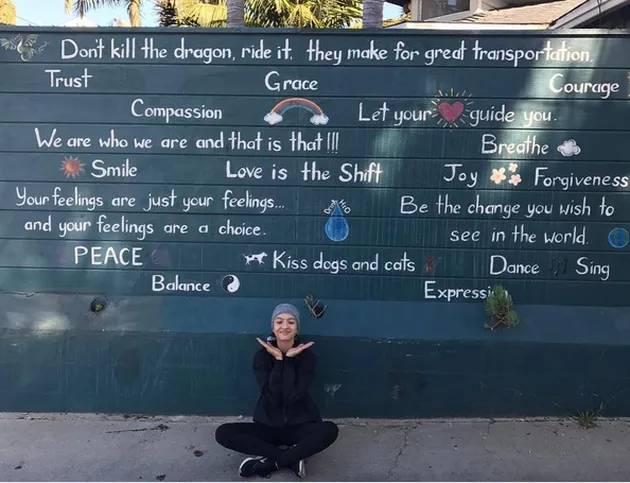 Don't kill the dragon, ride it, they make for great transportation.
Trust Grace Courage
Compassion Let your guide you.
We are who we are and that is that!!! Breathe
Smile Love is the Shift Joy Forgiveness
Your feelings are just your feelings... Drink H2O Be the change you wish to
and your feelings are a choice. see in the world.
PEACE Kiss dogs and cats Dance Sing
Balance Expression